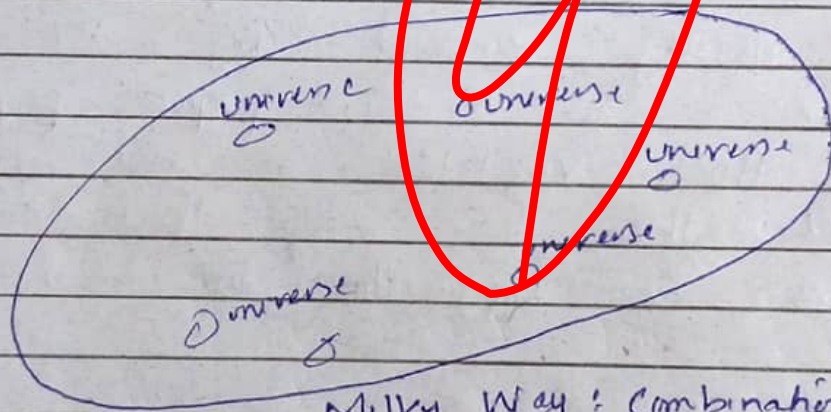 universe
universe
universe
universe
universe
Milky Way : Combination